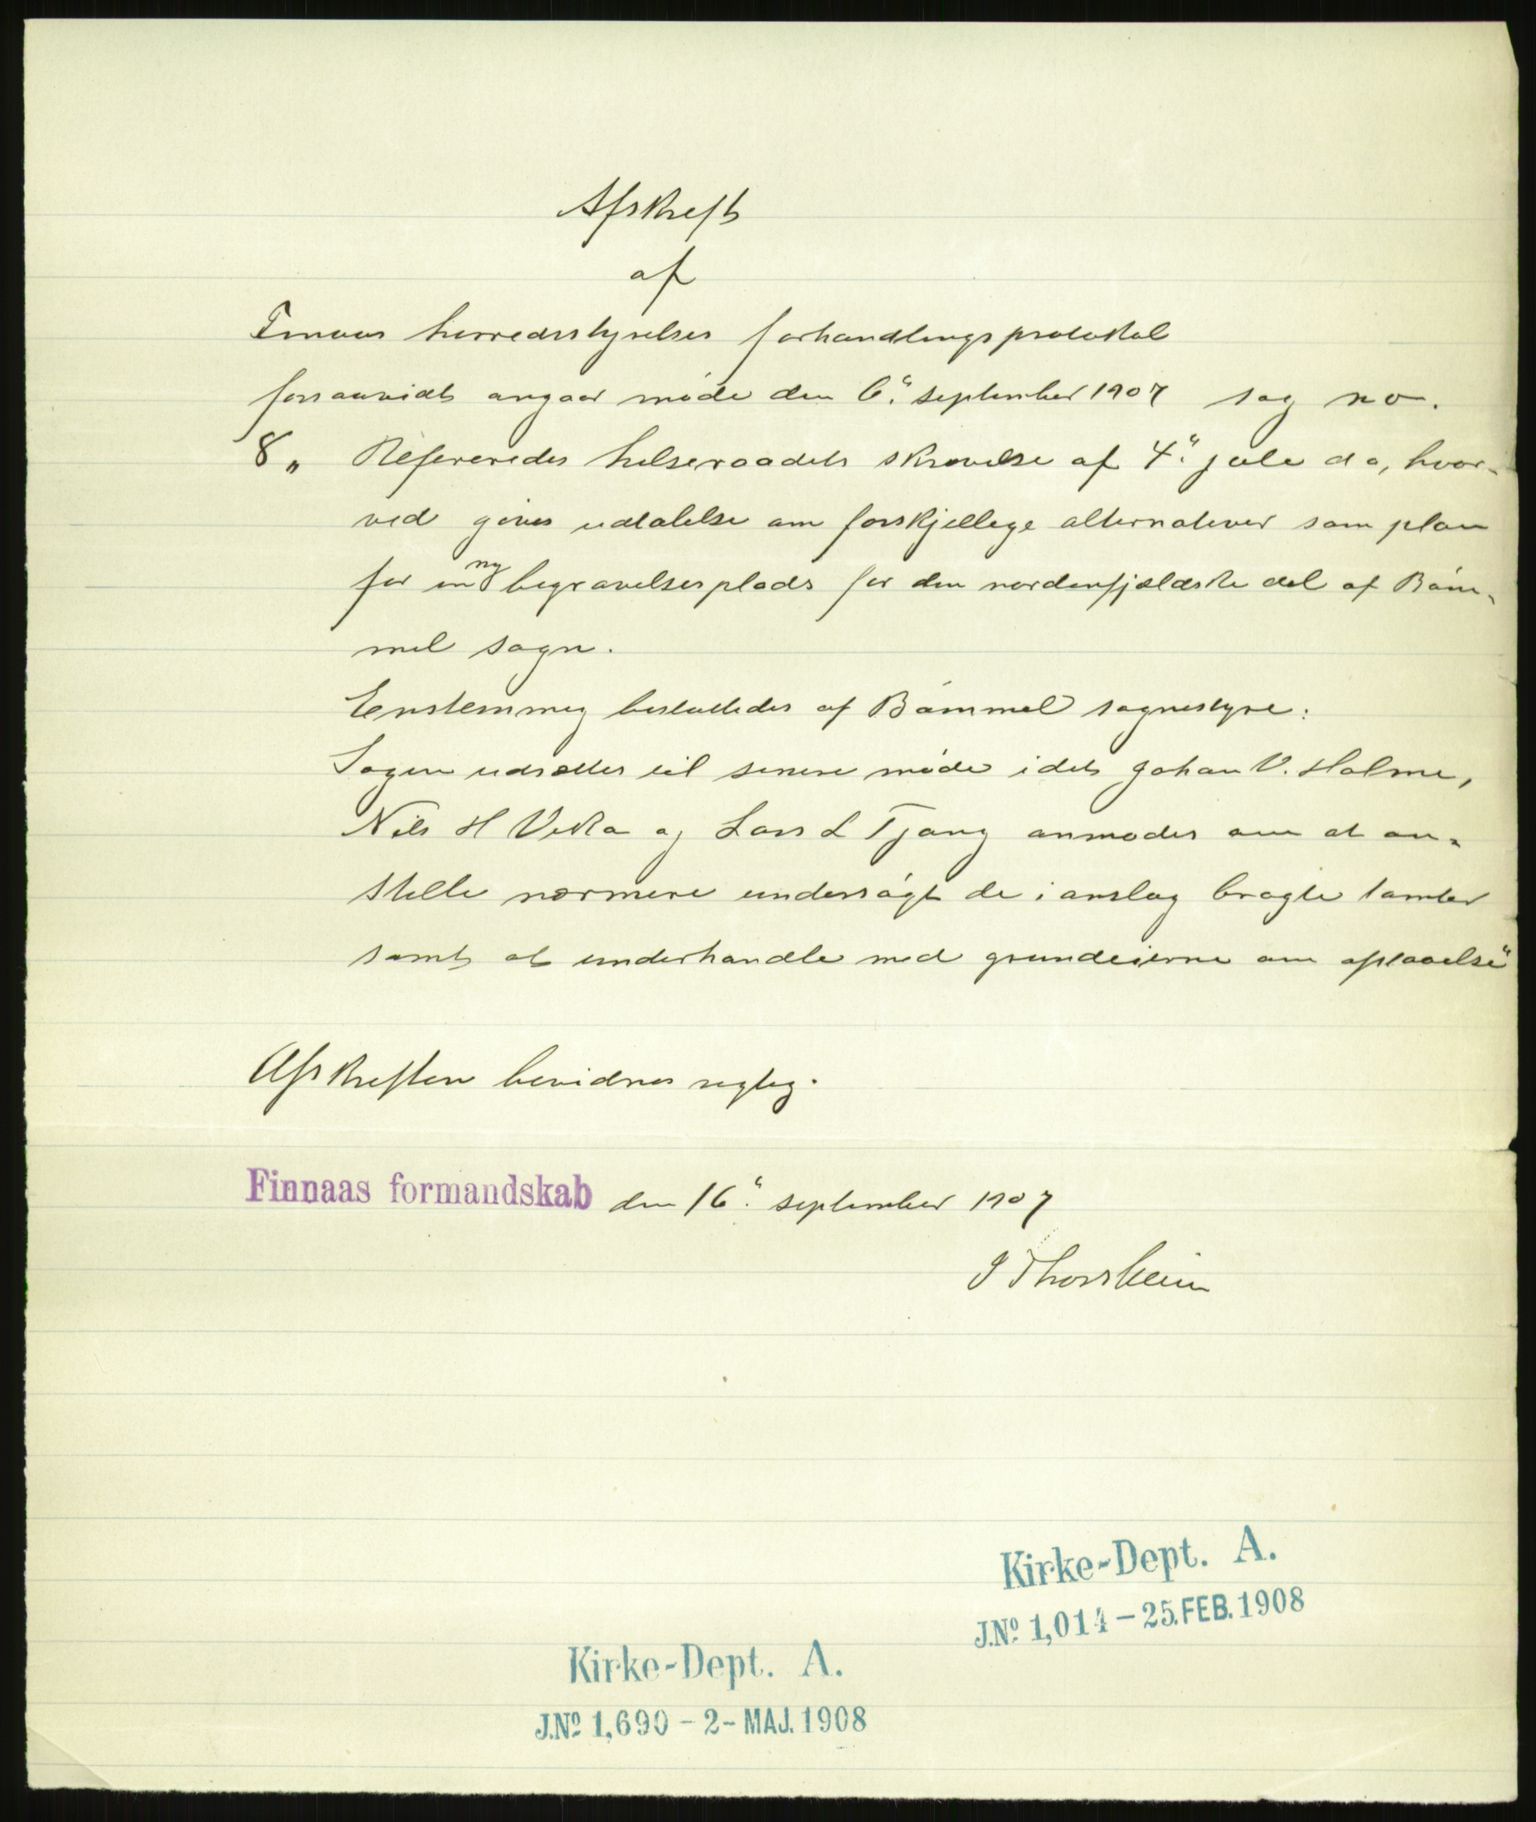 Afskrift
af
Finnaas herredsstyrelses forhandlingsprotokol
forsaavidt angaar møde den 6." september 1907 sag no.
8 „ Refereredes helseraadets skrivelse af 4." juli d a, hvor-
ved gives udtalelse om forskjellige alternativer som plan
for en ny begravelsesplads for den nordenfjældske del af Bøm-
mel sogn.
Enstemmig besluttedes af Bømmel sognestyre:
Sagen udsættes til senere møde idet Johan V. Holme,
Nils H Vika og Lars L Tjong anmodes om at an-
stille nærmere undersøgt de i anslag bragte tomter
samt at underhandle med grundeierne om afstaaelse"
Afskriften bevidnes rigtig.
Finnaas formandskab den 16." september 1907
J Thorsheim
Kirke-Dept. A.
J.No. 1,014 - 25.FEB.1908
Kirke-Dept. A.
J.No. 1,690 - 2 - MAJ.1908